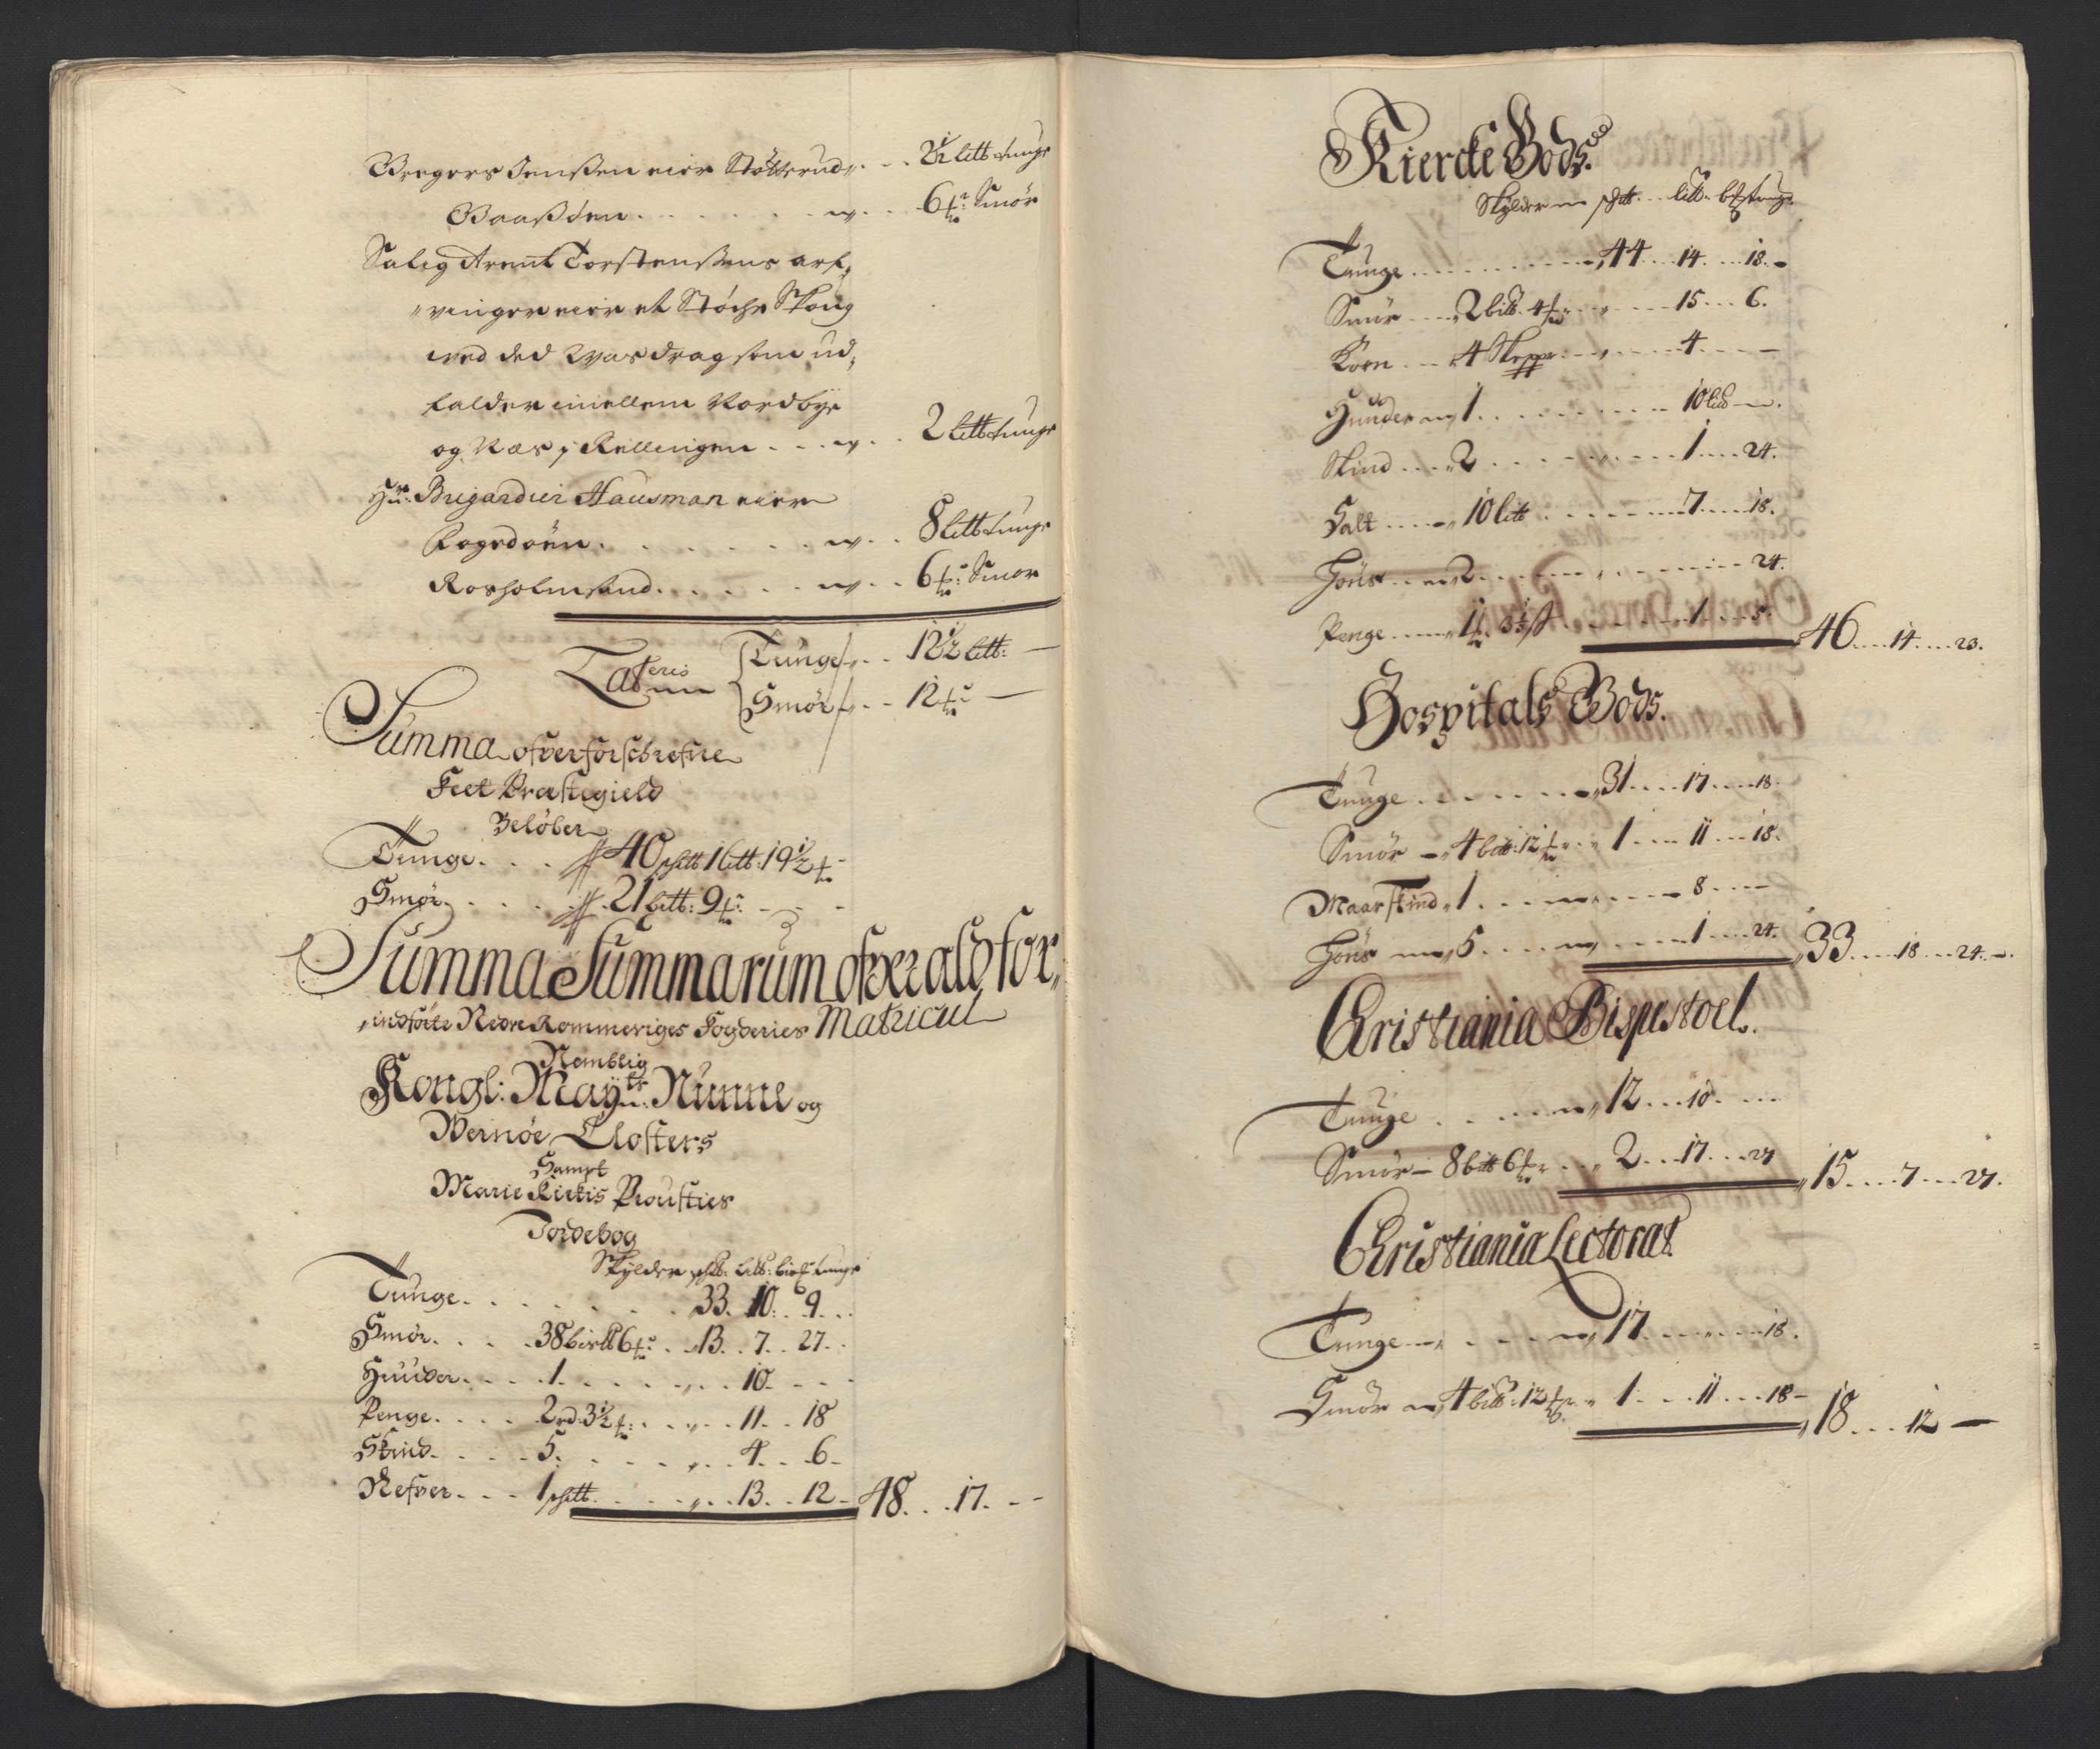 Bregers Jenßen eier Stötterud . . . 2½ litt tunge
Baaßöen . . . . . . . . 6 ℔: Smör
Salig Arent Torstensens arf,
vinger eier et Støche Skoug
ved ded Vasdrag som ud,
falder imellem Nordbye
og Næs j Rellingen . . . . . 2 litt tunge
Hr: Brigardier Hausman eier
Fogedöen . . . . . . . . 8 litt tunge
Rosholmsund . . . . . . . 6 ℔: Smör
Lateris Tunge . . 12½ litt: —
Smör . . 12 ℔: —
Summa ofverforschrefne
Feet Præstegield
Beløber
Tunge . . . 40 schtt 1 litt: 19½ ℔
Smör . . . . 21 litt: 9 ℔: - -
Summa Summarum ofver alt for,
indførte Nedre Rommeriges Fogderies Matricul
Nemblig
Kongl: Mayts: Nunne og
Wernöe Closters
Sampt
Marie Kirkis Prousties
Jordebog
Skylder schtt: litt: bis: tunge
Tunge . . . . . . . . 33. 10. . 9. . .
Smör . . . . 38 bis℔ 6 ℔: . . 13. . 7. . 27. .
Huuder . . . . 1. . . . . . . . 10. - - -
Penge . . . . 2 rd: 3½ ℔: . . . . 11. . 18
Skind . . . . 5. . . . . . . . 4. . . 6 -
Nefver . . . 1 schtt . . . . . . 13. . 12 - 48. . . 17. - -
Kiercke Gods.
Skylder schtt . . litt . . tunge
Tunge . . . . . . . . . . 44 . . . 14. . . . 18. -
Smör . . . . 2 bitt. 4 ℔ . . . . . . 15 . . . 6.
Korn . . . 4 Skpper . . . . . . . 4. . . . —
Huuder 1 . . . . . . . . . . 10 litt —.
Skind . . . . 2 . . . . . . . . . 1 . . . . 24.
Salt . . . . 10 litt . . . . . . . . 7 . . . . 18.
Höns . . . 2 . . . . . . . . . . . . . 24.
Penge . . . . . 1 ℔. 3½ ß . . . . . . . 1 . . . 5. 46. . . . 14. . . . 23.
Hospitals Gods.
Tunge . . . . . . . . . 31 . . . . 17. . . . 18.
Smör - 4 bitt: 12 ℔ . . 1 . . . . 11 . . . 18.
Maar skind 1 . . . . . . . . . 8 . . . —
Höns 5 . . . . . . . . 1 . . . 24. 33. . . . 18 . . . 24. -.
Christiania Bispestoel.
Tunge . . . . . . 12 . . . 10. . . .
Smör - 8 bitt 6 ℔: . . . 2 . . . 17. . . 27 15 . . . . 7 . . . 27.
Christiania Lectorat
Tunge . . . . . . . 17. . . . . . . 18.
Smör 4 bitt: 12 ℔: 1 . . . 11 . . . 18 - 18 . . . 12 —